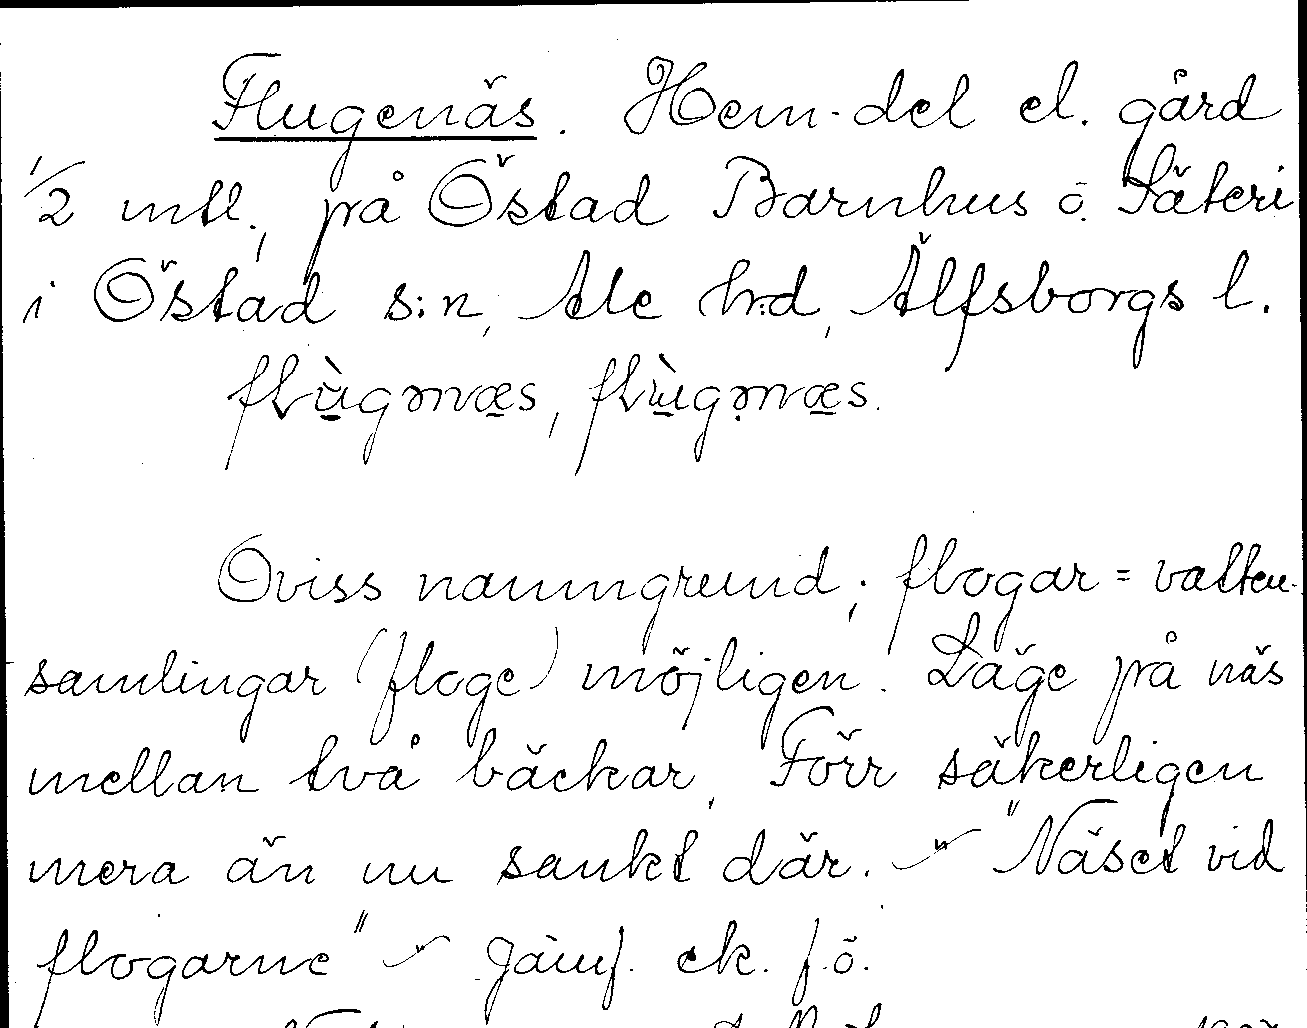 Flugenäs. Hem-del el. gård
1/2 mtl., på Östad Barnhus o. Säteri
i Östad s:n, Ale h:d, Älfsborgs l.
flùgənæs, flùgənæs.
Oviss namngrund; flogar = vatten-
samlingar (floge) möjligen. Läge på näs
mellan två bäckar. Förr säkerligen
mera än nu sankt där. ~ "Näset vid
flogarne" ~ Jämf. ek. f.ö.